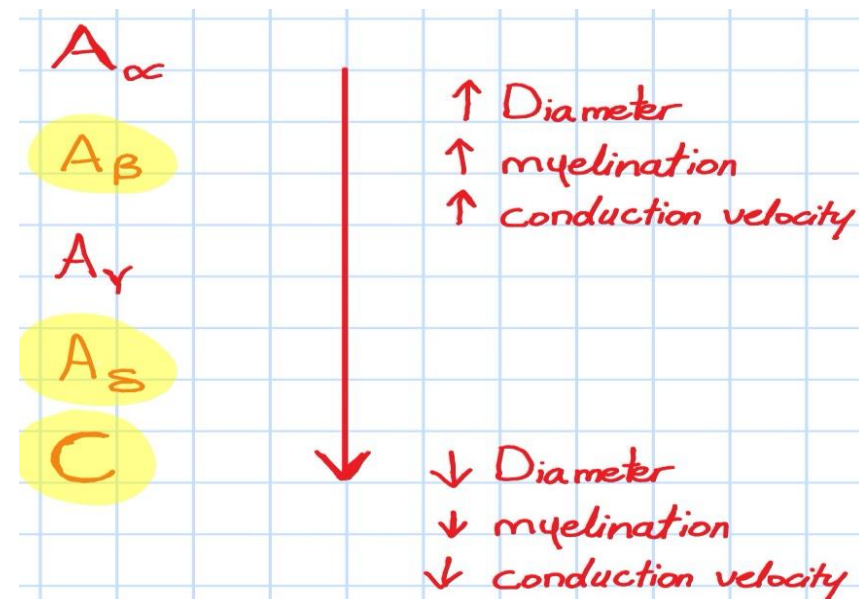 Aα
Aβ
Aγ
Aδ
C
↑ Diameter
↑ myelination
↑ conduction velocity
↓ Diameter
↓ myelination
↓ conduction velocity